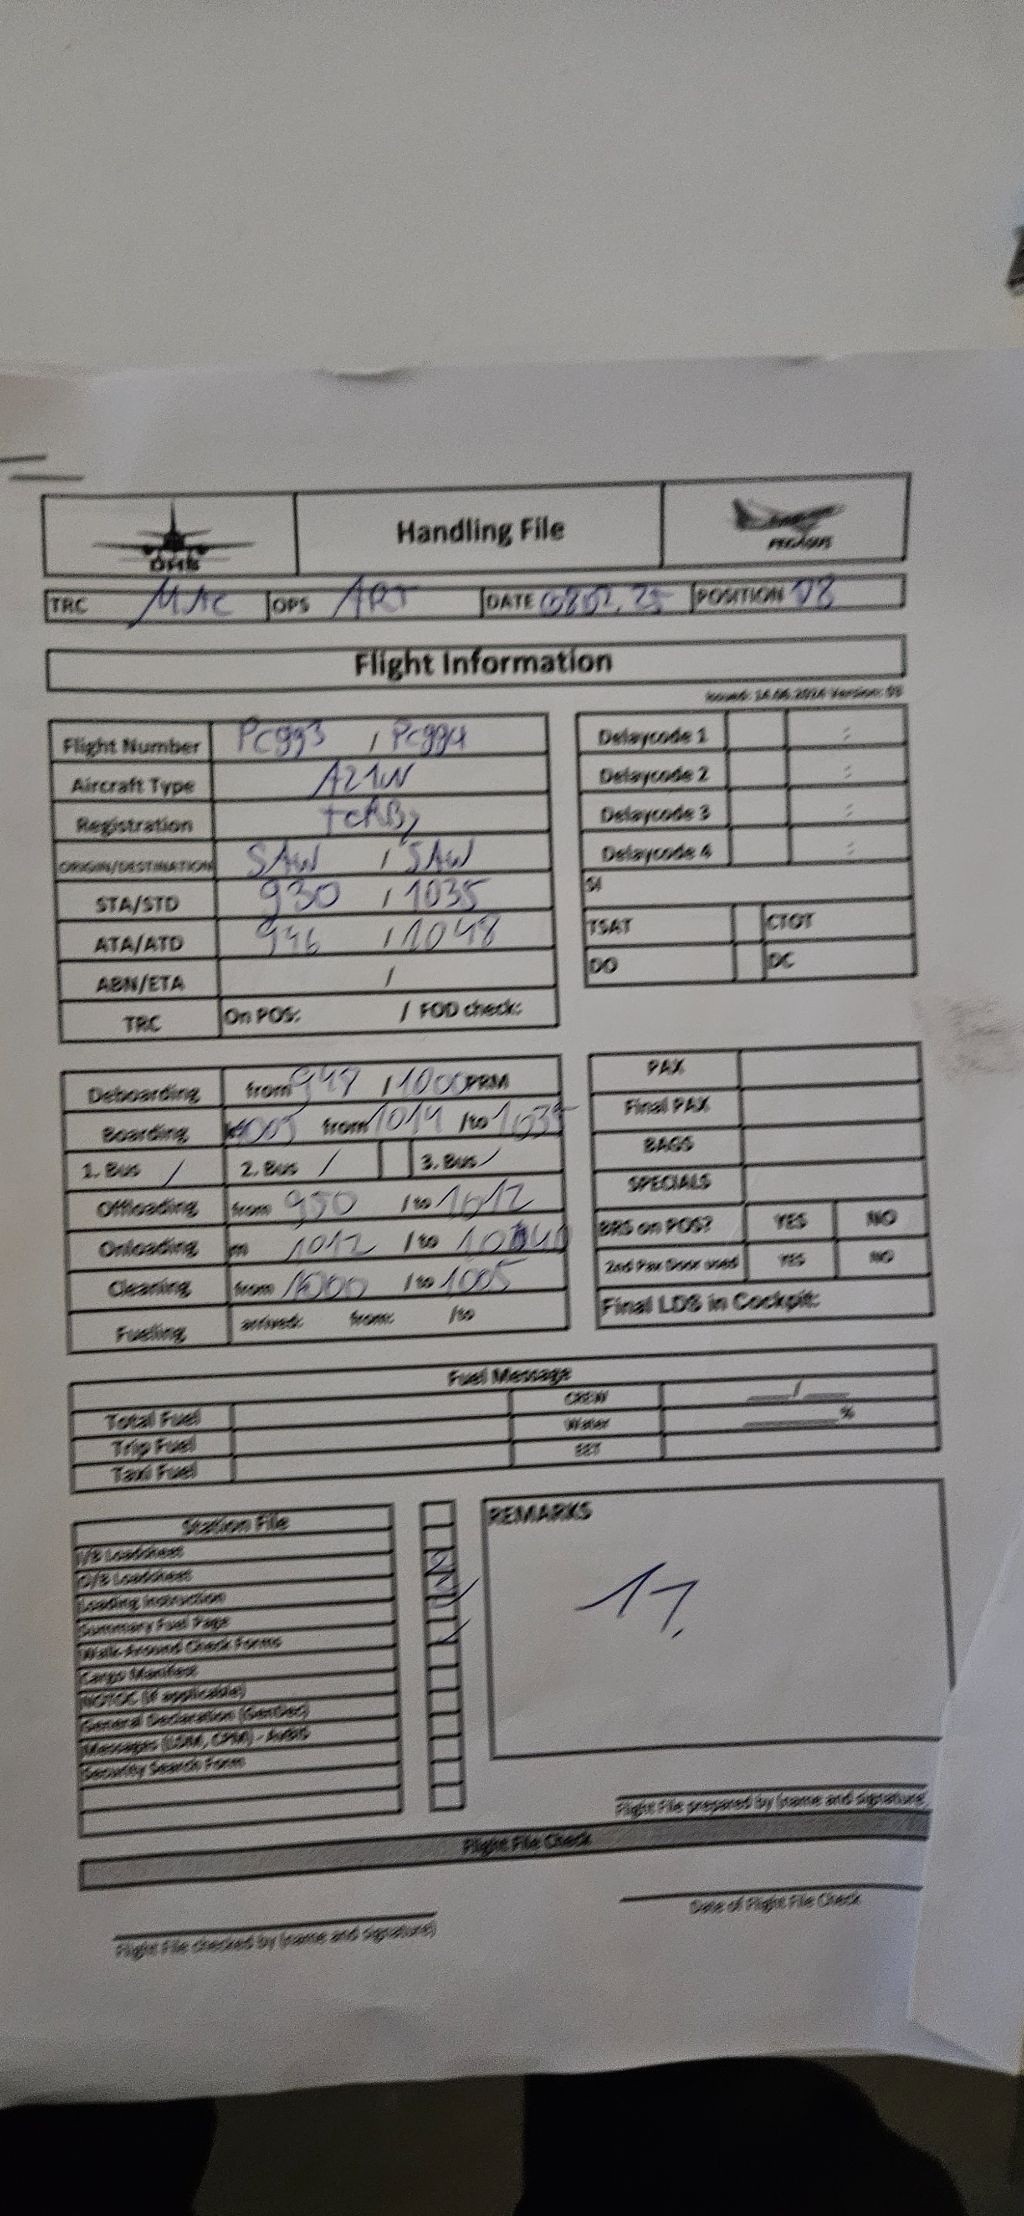 Handling File
PEGASUS
TRC OPS ART DATE POSITION 08
Flight Information
Issued: 14.06.2024 Version: 03
Flight Number Pc993 / Pc994
Aircraft Type A21N
Registration
ORIGIN/DESTINATION SAW / SAW
STA/STD 930 / 1035
ATA/ATD 946 / 1048
ABN/ETA /
TRC On POS: / FOD check:
Delaycode 1 :
Delaycode 2 :
Delaycode 3 :
Delaycode 4 :
SI
TSAT CTOT
DO DC
Deboarding from 948 / 1000 PRM
Boarding 1005 from 1014 /to 1035
1. Bus / 2. Bus / 3. Bus /
Offloading from 950 /to 1012
Onloading 1012 /to
Cleaning from 1000 /to 1005
Fueling arrived: from: /to
PAX
Final PAX
BAGS
SPECIALS
BRS on POS? YES NO
2nd Pax Door used YES NO
Final LDS in Cockpit:
Fuel Message
Total Fuel CREW ____/____
Trip Fuel Water ________%
Taxi Fuel EET
Station File
I/B Loadsheet
O/B Loadsheet
Loading Instruction
Summary Fuel Page
Walk-Around Check Forms
Cargo Manifest
NOTOC (if applicable)
General Declaration (GenDec)
Messages (LDM, CPM) -
Security Search Form
REMARKS
Flight File prepared by (name and signature)
Flight File Check
Flight File checked by (name and signature)
Date of Flight File Check